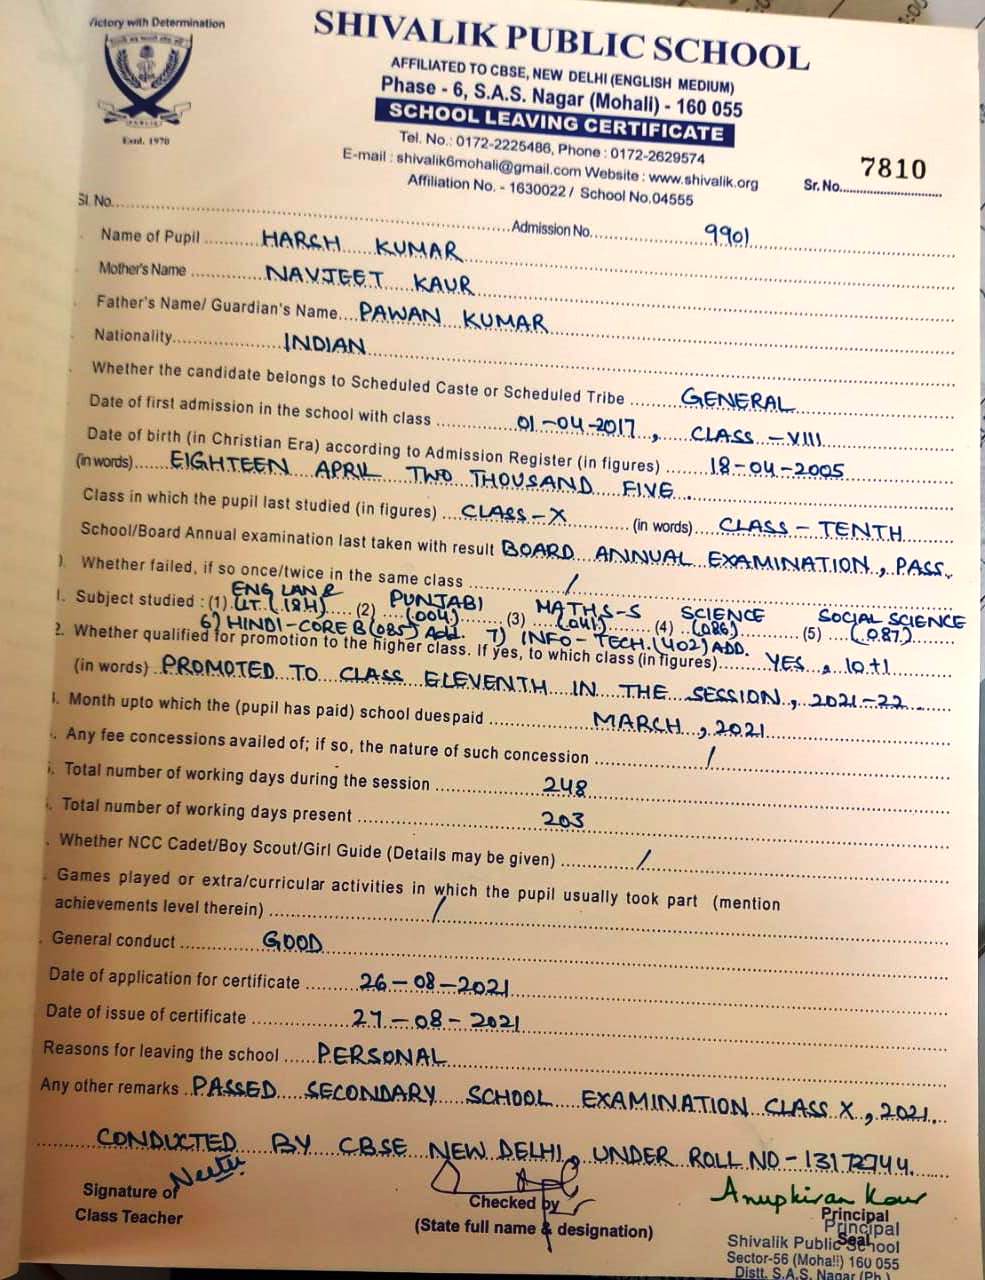 Victory with Determination
Estd. 1970
SHIVALIK PUBLIC SCHOOL
AFFILIATED TO CBSE, NEW DELHI (ENGLISH MEDIUM)
Phase - 6, S.A.S. Nagar (Mohali) - 160 055
SCHOOL LEAVING CERTIFICATE
Tel. No.: 0172-2225486, Phone : 0172-2629574
E-mail : shivalik6mohali@gmail.com Website : www.shivalik.org
Affiliation No. - 1630022 / School No.04555
7810
Sr. No.
Sl. No. Admission No. 9901
Name of Pupil HARSH KUMAR
Mother's Name NAVJEET KAUR
Father's Name/ Guardian's Name PAWAN KUMAR
Nationality INDIAN
Whether the candidate belongs to Scheduled Caste or Scheduled Tribe GENERAL
Date of first admission in the school with class 01-04-2017, CLASS-VIII
Date of birth (in Christian Era) according to Admission Register (in figures) 18-04-2005
(in words) EIGHTEEN APRIL TWO THOUSAND FIVE.
Class in which the pupil last studied (in figures) CLASS-X (in words) CLASS-TENTH
School/Board Annual examination last taken with result BOARD ANNUAL EXAMINATION, PASS.
Whether failed, if so once/twice in the same class /
Subject studied : (1) ENG LAN & LIT. (184) (2) PUNJABI (004) (3) MATHS-S (041) (4) SCIENCE (086) (5) SOCIAL SCIENCE (087)
6) HINDI-CORE B (085) Add. 7) INFO-TECH. (402) ADD.
2. Whether qualified for promotion to the higher class. If yes, to which class (in figures) YES, 10+1
(in words) PROMOTED TO CLASS ELEVENTH IN THE SESSION, 2021-22.
Month upto which the (pupil has paid) school duespaid MARCH, 2021
Any fee concessions availed of; if so, the nature of such concession /
Total number of working days during the session 248
Total number of working days present 203
Whether NCC Cadet/Boy Scout/Girl Guide (Details may be given) /
Games played or extra/curricular activities in which the pupil usually took part (mention
achievements level therein) /
General conduct GOOD
Date of application for certificate 26-08-2021
Date of issue of certificate 27-08-2021
Reasons for leaving the school PERSONAL
Any other remarks PASSED SECONDARY SCHOOL EXAMINATION CLASS X, 2021.
CONDUCTED BY CBSE NEW DELHI, UNDER ROLL NO-13172744.
Neetu
Anupkiran Kaur
Signature of
Class Teacher
Checked by
(State full name & designation)
Principal
Seal
Principal
Shivalik Public School
Sector-56 (Mohali) 160 055
Distt. S.A.S. Nagar (Pb.)